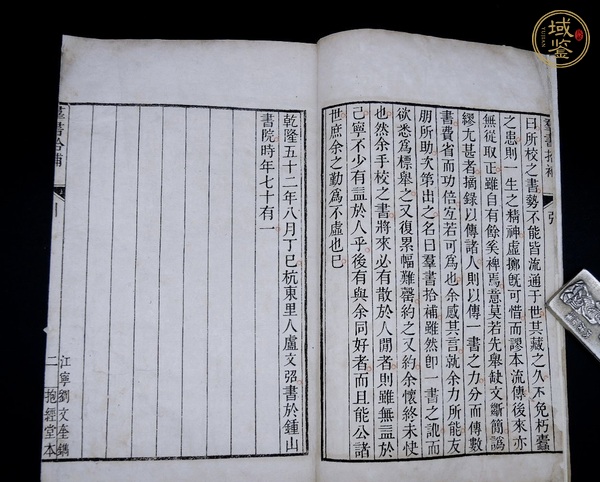 曰所校之書勢不能皆流通于世其藏之久不免朽蠹
之患則一生之精神虛擲旣可惜而謬本流傳後來亦
無從取正雖自有餘奚裨焉意莫若先舉缺文斷簡譌
繆尤甚者摘錄以傳諸人則以傳一書之力分而傳數
書費省而功倍宜若可爲也余感其言就余力所能友
朋所助次第出之名曰羣書拾補雖然卽一書之譌而
欲悉爲標舉之又復累幅難罄約之又約余懷終未快
也然余手校之書將來必有散於人閒者則雖無益於
己寧不少有益於人乎後有與余同好者而且能公諸
世庶余之勤爲不虛也已
乾隆五十二年八月丁巳杭東里人盧文弨書於鍾山
書院時年七十有一
羣書拾補
二
抱經堂本
江寧劉文奎鐫
羣書拾補
域鑒
YUJIAN